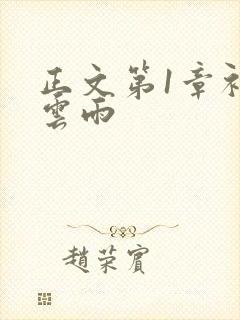 正文第1章初
雲雨
趙荣賓